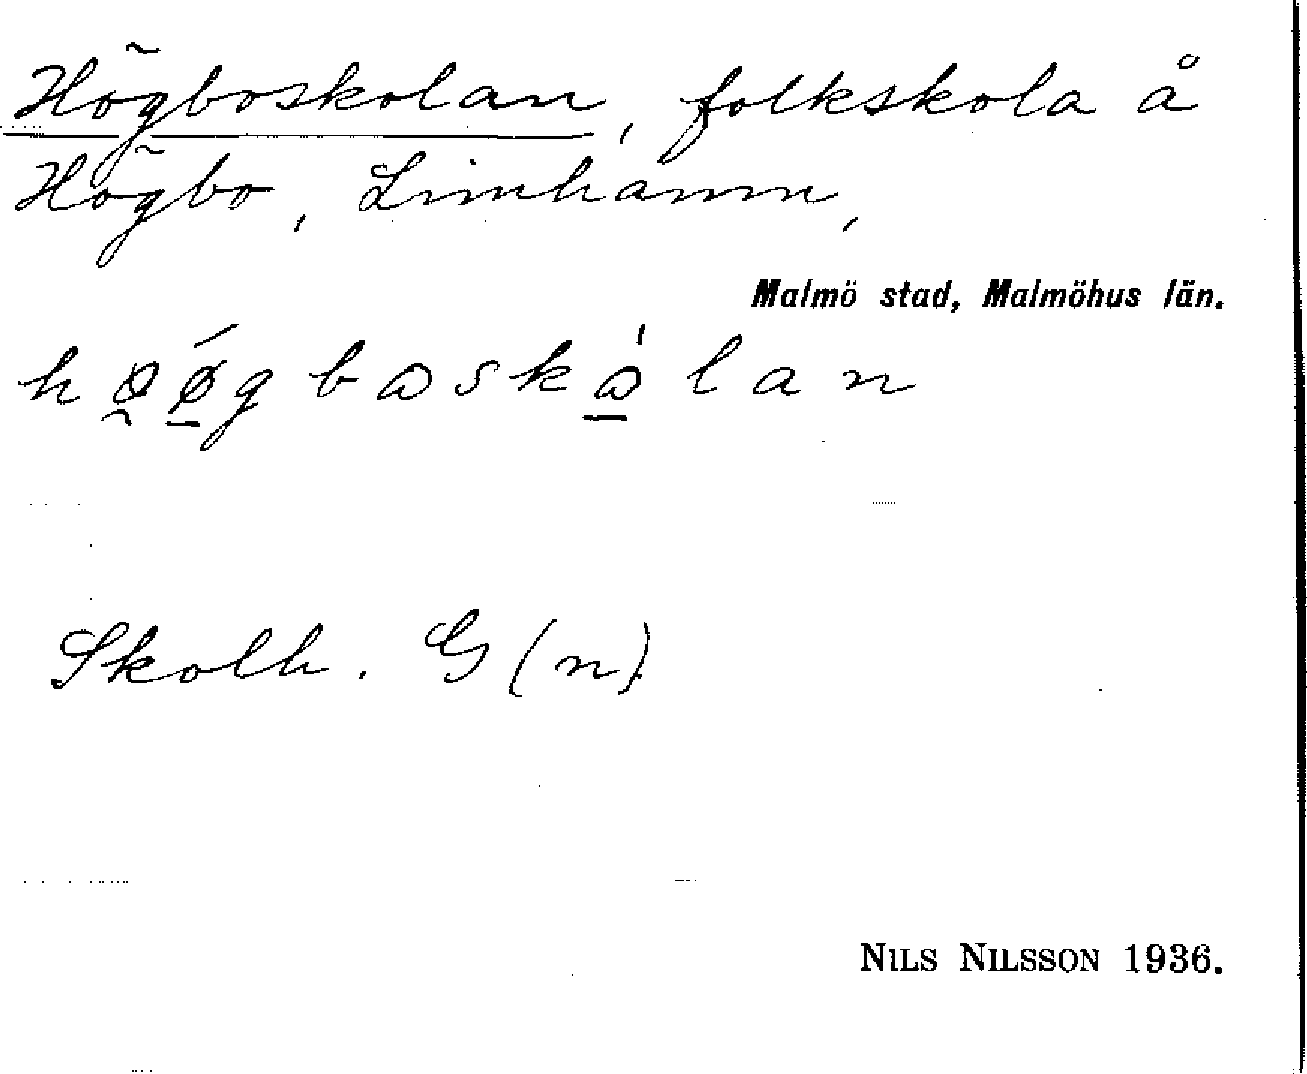 Högboskolan, folkskola å
Högbo, Limhamn,
Malmö stad, Malmöhus län.
Skolh. G (n)
NILS NILSSON 1936.